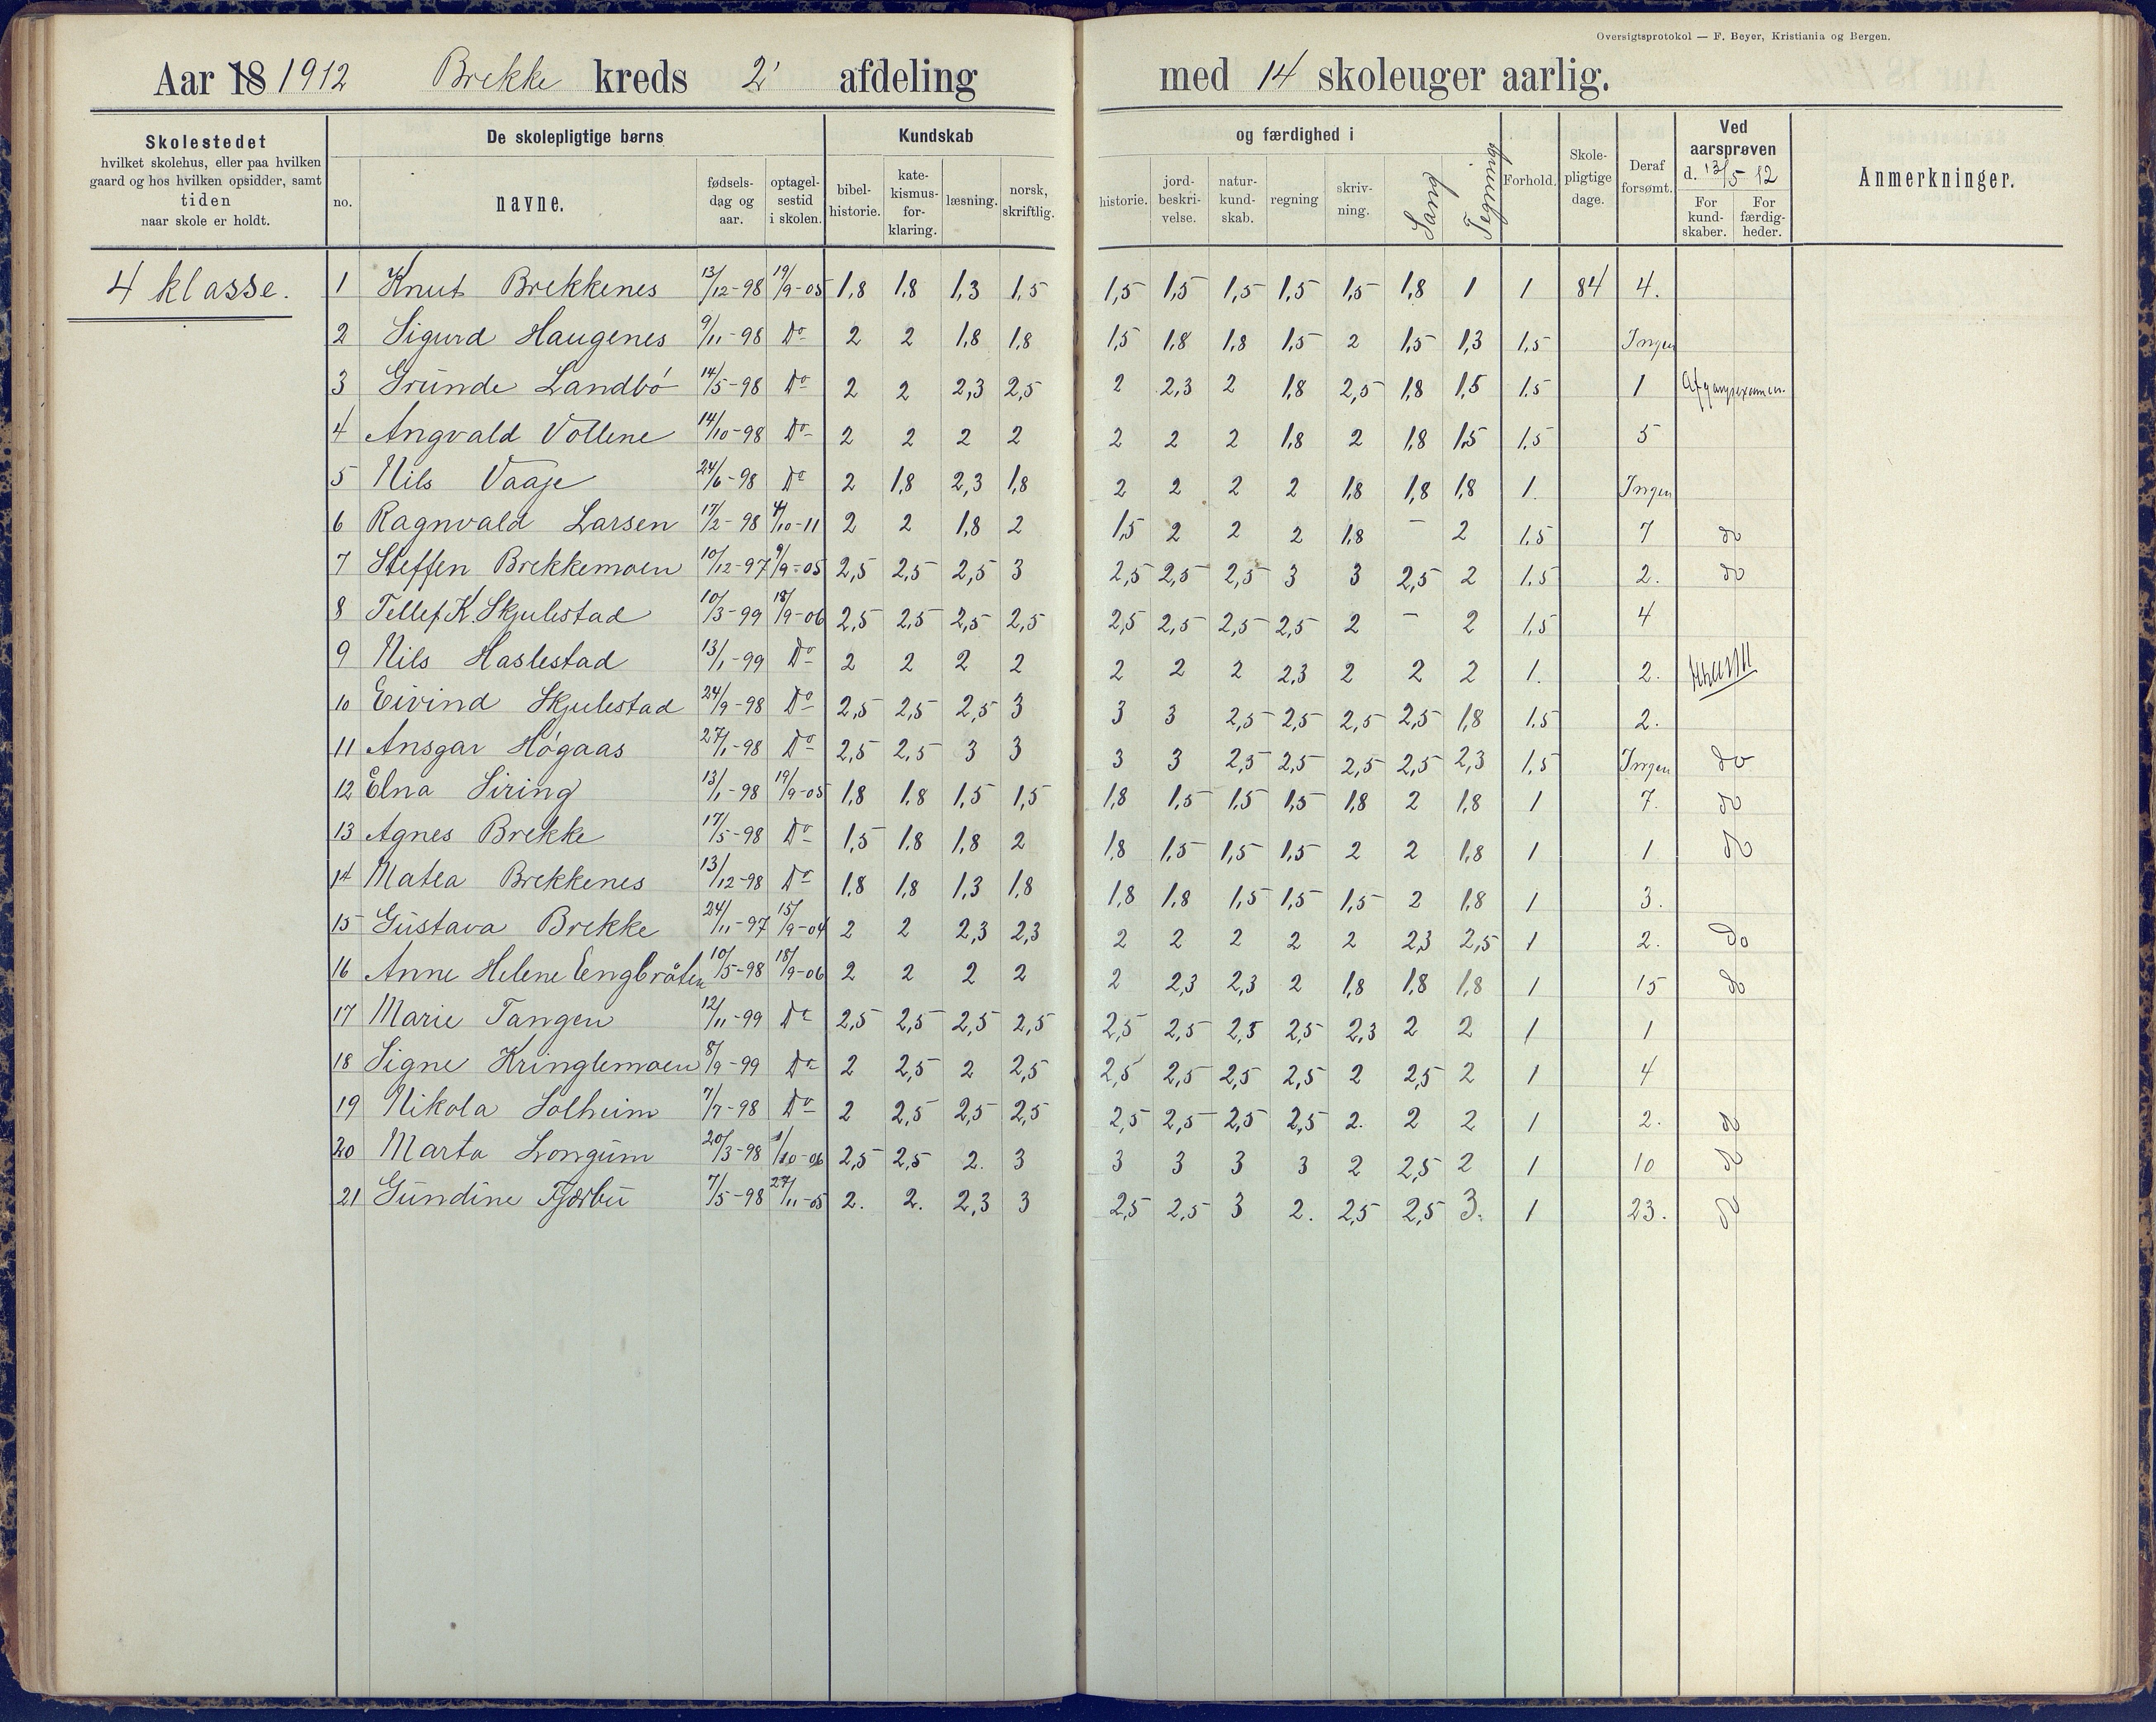 Oversigtsprotokol — F. Beyer, Kristiania og Bergen.
Aar 18 1912 Brekke kreds 2' afdeling med 14 skoleuger aarlig.
Skolestedet hvilket skolehus, eller paa hvilken gaard og hos hvilken opsidder, samt tiden naar skole er holdt.
De skolepligtige børns
no. navne. fødsels-dag og aar. optagel-sestid i skolen.
Kundskab og færdighed i
bibel-historie. kate-kismus-for-klaring. læsning. norsk, skriftlig. historie. jord-beskri-velse. natur-kund-skab. regning skriv-ning. Sang Tegning Forhold. Skole-pligtige dage. Deraf forsømt.
Ved aarsprøven d. 13/5 - 12
For kund-skaber. For færdig-heder.
Anmerkninger.
4 klasse.
1 Knut Brekkenes 13/12-98 19/9-05 1,8 1,8 1,3 1,5 1,5 1,5 1,5 1,5 1,5 1,8 1 1 84 4.
2 Sigurd Haugenes 9/11-98 Do 2 2 1,8 1,8 1,5 1,8 1,8 1,5 2 1,5 1,3 1,5 Ingen
3 Grunde Landbø 14/5-98 Do 2 2 2,3 2,5 2 2,3 2 1,8 2,5 1,8 1,5 1,5 1 Afgangsexamen.
4 Angvald Vollene 14/10-98 Do 2 2 2 2 2 2 2 1,8 2 1,8 1,5 1,5 5
5 Nils Vaaje 24/6-98 Do 2 1,8 2,3 1,8 2 2 2 2 1,8 1,8 1,8 1. Ingen
6 Ragnvald Larsen 17/2-98 4/10-11 2 2 1,8 2 1,5 2 2 2 1,8 - 2 1,5 7 do
7 Steffen Brekkemoen 10/12-97 9/9-05 2,5 2,5 2,5 3 2,5 2,5 2,5 3 3 2,5 2 1,5 2. do
8 Tellef K. Skjulestad 10/3-99 18/9-06 2,5 2,5 2,5 2,5 2,5 2,5 2,5 2,5 2 - 2 1,5 4
9 Nils Haslestad 13/1-99 Do 2 2 2 2 2 2 2 2,3 2 2 2 1. 2.
10 Eivind Skjulestad 24/9-98 Do 2,5 2,5 2,5 3 3 3 2,5 2,5 2,5 2,5 1,8 1,5 2.
11 Ansgar Høgaas 27/1-98 Do 2,5 2,5 3 3 3 3 2,5 2,5 2,5 2,5 2,3 1,5 Ingen do
12 Elna Siring 13/1-98 19/9-05 1,8 1,8 1,5 1,5 1,8 1,5 1,5 1,5 1,8 2 1,8 1 7. do
13 Agnes Brekke 17/5-98 Do 1,5 1,8 1,8 2 1,8 1,5 1,5 1,5 2 2 1,8 1 1 do
14 Matea Brekkenes 13/12-98 Do 1,8 1,8 1,3 1,8 1,8 1,8 1,5 1,5 1,5 2 1,8 1 3.
15 Gustava Brekke 24/11-97 15/9-04 2 2 2,3 2,3 2 2 2 2 2 2,3 2,5 1 2. Do
16 Anne Helene Eengbråten 10/5-98 18/9-06 2 2 2 2 2 2,3 2,3 2 1,8 1,8 1,8 1 15 do
17 Marie Tangen 12/11-99 Do 2,5 2,5 2,5 2,5 2,5 2,5 2,5 2,5 2,3 2 2 1 1
18 Signe Kringlemoen 8/9-99 Do 2 2,5 2 2,5 2,5 2,5 2,5 2,5 2 2,5 2 1 4
19 Nikola Solheim 7/7-98 Do 2 2,5 2,5 2,5 2,5 2,5 2,5 2,5 2. 2 2 1 2. do
20 Marta Longum 20/3-98 1/10-06 2,5 2,5 2. 3 3 3 3 3 2 2,5 2 1 10 do
21 Gundine Fjærbu 7/5-98 27/11-05 2. 2. 2,3 3 2,5 2,5 3 2. 2,5 2,5 3. 1 23. do